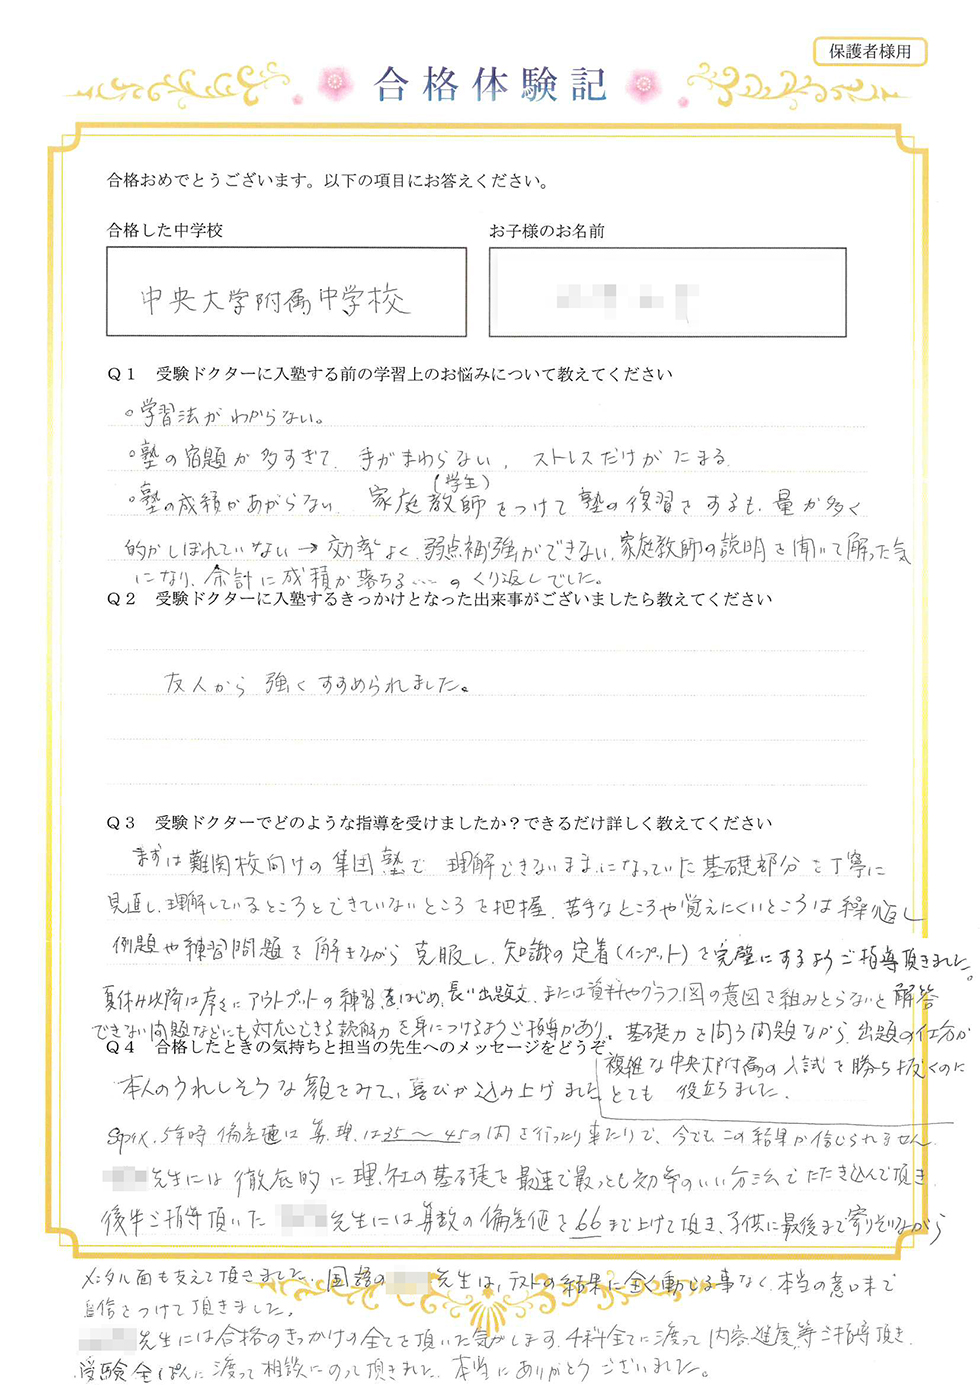 保護者様用
合格体験記
合格おめでとうございます。以下の項目にお答えください。
合格した中学校
お子様のお名前
中央大学附属中学校
Q1 受験ドクターに入塾する前の学習上のお悩みについて教えてください
○学習法がわからない。
○塾の宿題が多すぎて、手がまわらない、ストレスだけがたまる。
(学生)
○塾の成績があがらない、家庭教師をつけて塾の復習をするも、量が多く
的がしぼれていない→効率よく、弱点補強ができない、家庭教師の説明を聞いて解った気
になり、余計に成績が落ちる…のくり返しでした。
Q2 受験ドクターに入塾するきっかけとなった出来事がございましたら教えてください
友人から強くすすめられました。
Q3 受験ドクターでどのような指導を受けましたか?できるだけ詳しく教えてください
まずは難関校向けの集団塾で理解できないままになっていた基礎部分を丁寧に
見直し、理解しているところとできていないところを把握、苦手なところや覚えにくいところは繰り返し
例題や練習問題を解きながら克服し、知識の定着(インプット)を完璧にするようご指導頂きました。
夏休み以降は序々にアウトプットの練習をはじめ、長い出題文、または資料やグラフ、図の意図を組みとらないと解答
できない問題などにも対応できる読解力を身につけるようご指導があり、基礎力を問う問題ながら、出題の仕方が
Q4 合格したときの気持ちと担当の先生へのメッセージをどうぞ
複雑な中央大附属の入試を勝ち抜くのに
本人のうれしそうな顔をみて、喜びが込み上げました
とても役立ちました。
Sapix、5年時偏差値は算、理、は35〜45の間を行ったり来たりで、今でもこの結果が信じられません。
先生には徹底的に理、社の基礎を最速で最っとも効率のいい方法でたたき込んで頂き、
後半ご指導頂いた 先生には算数の偏差値を66まで上げて頂き、子供に最後まで寄りそいながら
メンタル面も支えて頂きました。国語の 先生は、テストの結果に全く動じる事なく、本当の意味まで
自信をつけて頂きました。
先生には合格のきっかけの全てを頂いた気がします。4科全てに渡って内容、進度、等ご指導頂き、
受験全ぱんに渡って相談にのって頂きました。本当にありがとうございました。